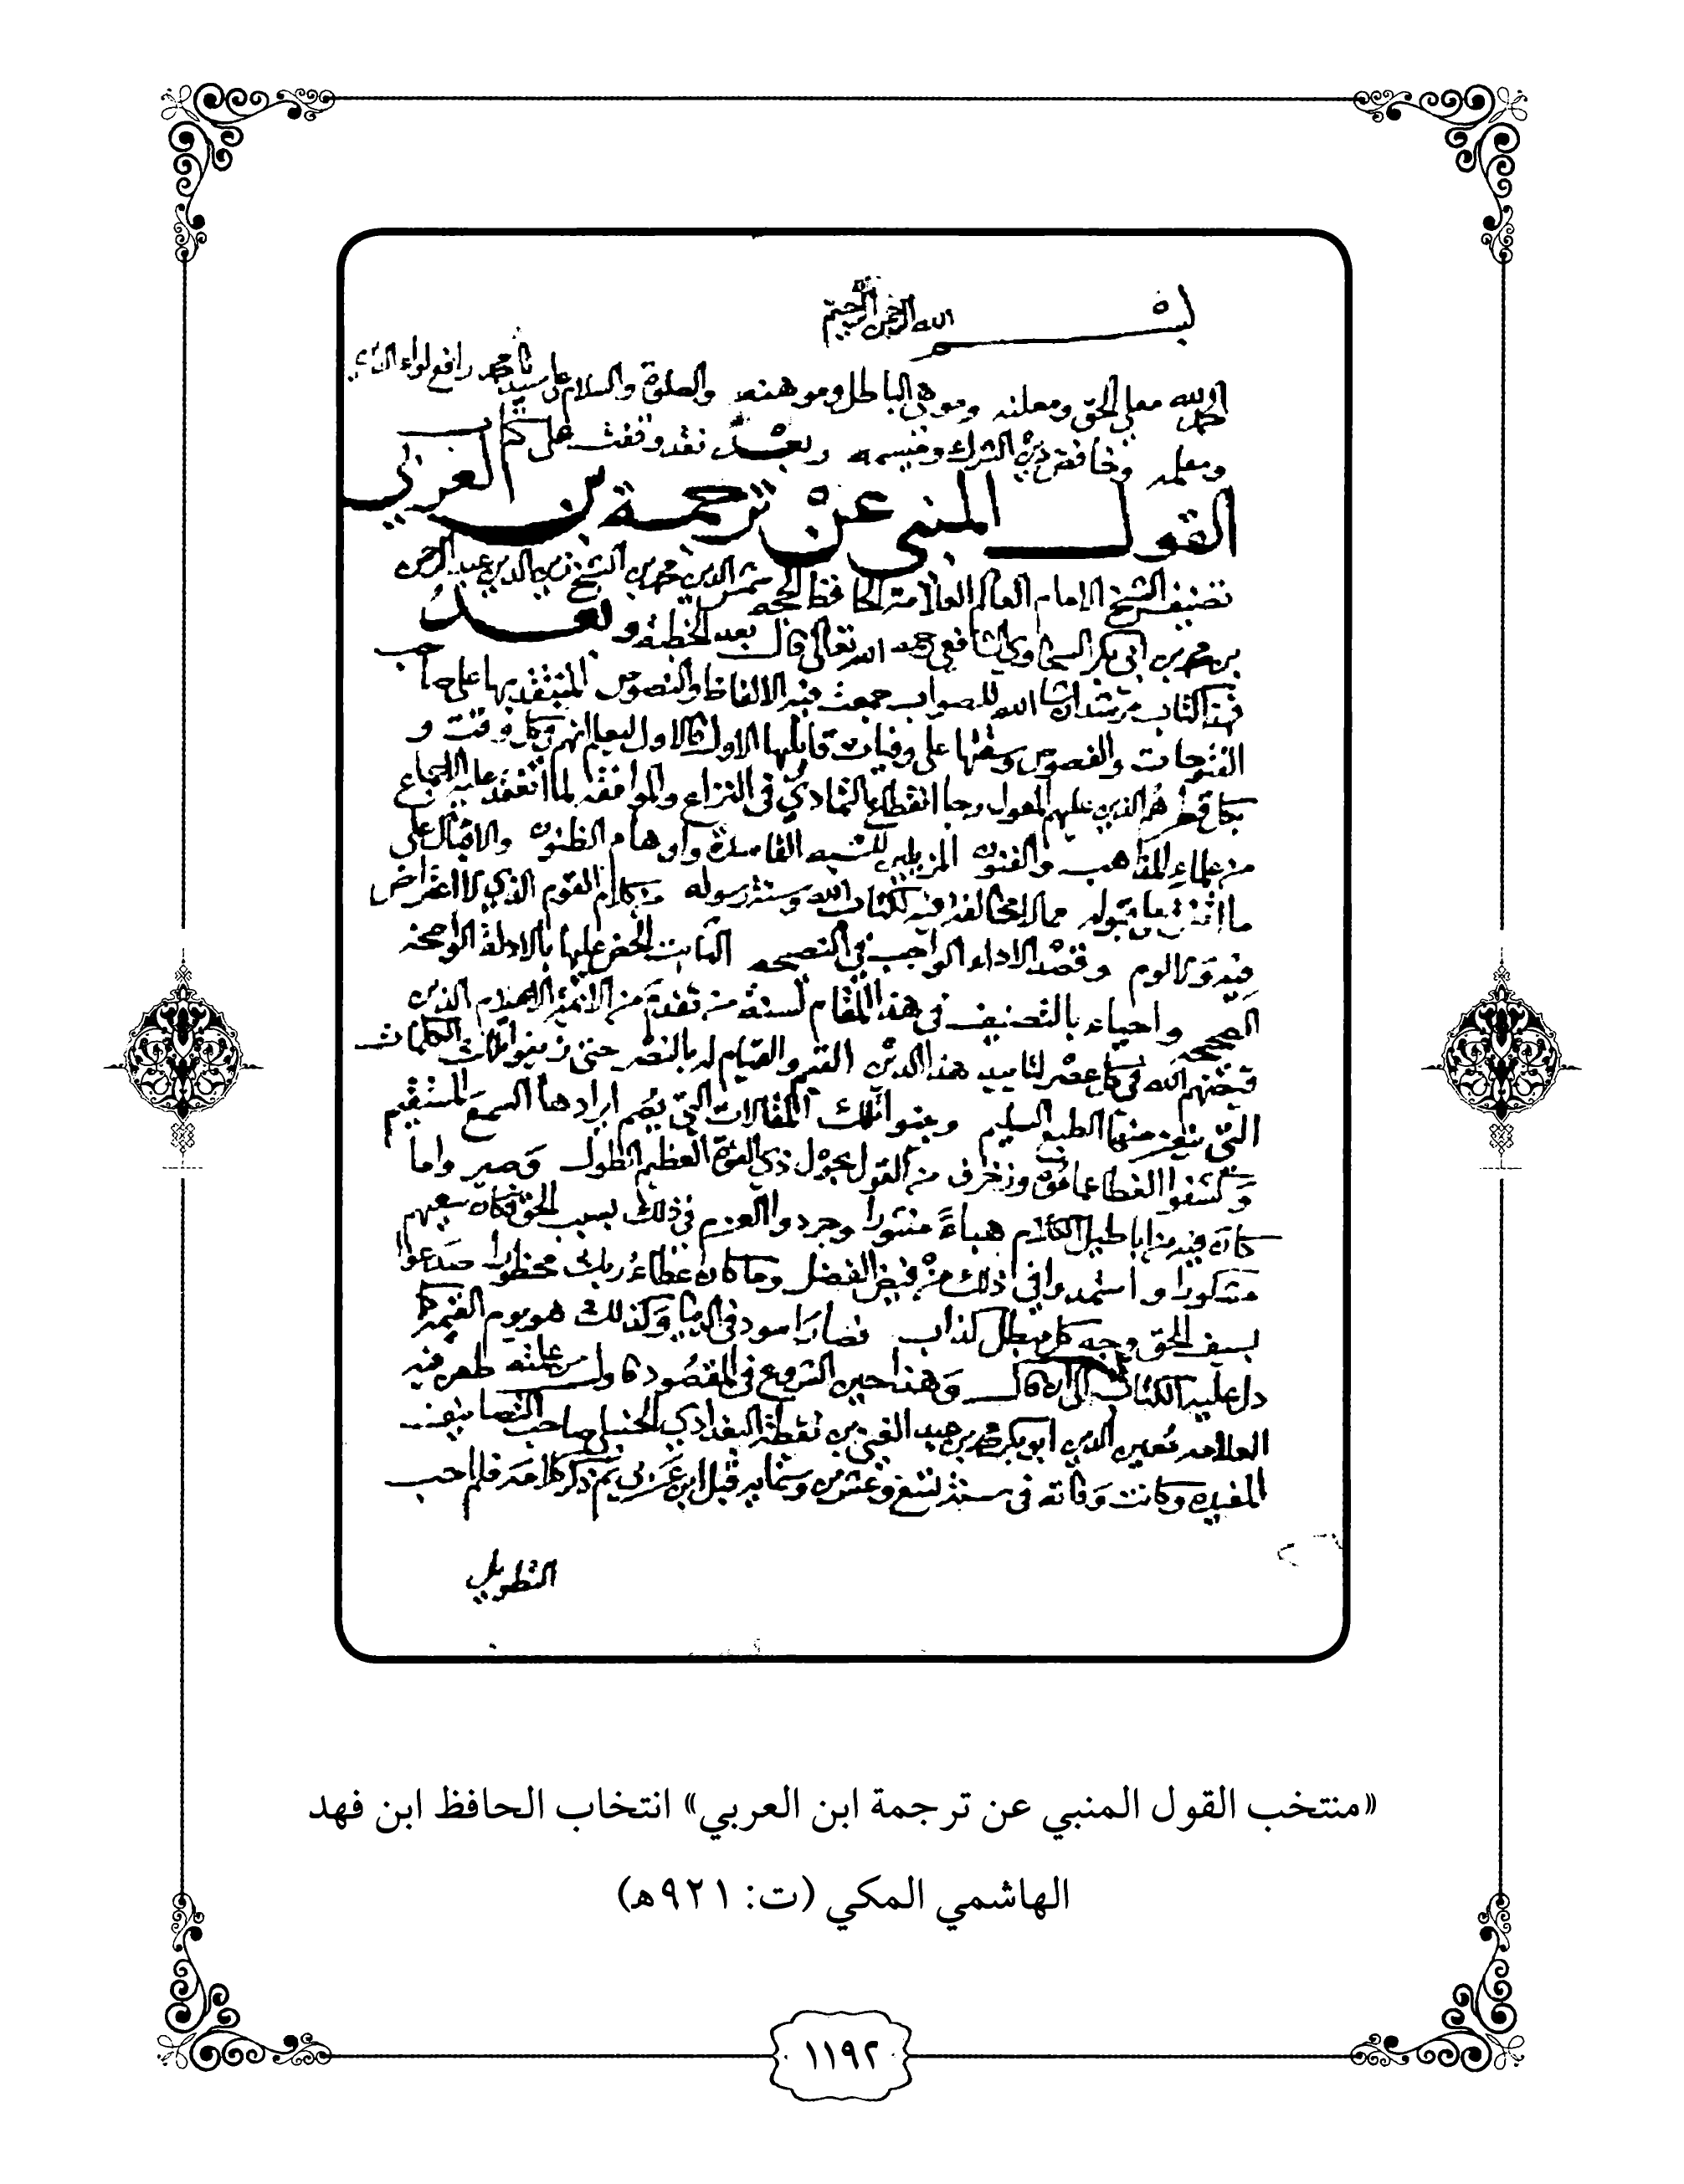 بسم الله الرحمن الرحيم
الحمد لله معلي الحق ومعلنه وموهي الباطل وموهنه والصلوة والسلام على سيدنا محمد رافع لواء
ومعلمه وخافض الشرك وبعد فقد وقفت على كتاب
القول المنبي عن ترجمة بن العربي
تصنيف الشيخ الامام العالم العلامة الحافظ الحجه شمس الدين محمد بن الشيخ زين الدين عبد الرحمن
بن محمد بن ابي بكر السخاوي الشافعي رحمه الله تعالى قال بعد الخطبة وبعد
فهذا كتاب مرشد ان شا الله للصواب جمعت فيه الالفاظ والنصوص المنتقد بها على صاحب
الفتوحات والفصوص وسقتها على وفيات قايليها الاول فالاول ليعلم انهم في كل وقت و
بكل قطر هم الذين عليهم المعول رجا انقطاع التمادي في النزاع والموافقه لما انعقد عليه الاجماع
من علماء المذاهب والفنون المزيلين للشبه الفاسدة واوهام الظنون والاقبال على
ما اتفق على قبوله مما لا مخالفة فيه لكتاب الله وسنة رسوله وكلام القوم الذي لا اعتراض
فيه ولا لوم وقصد الاداء الواجب في النصيحه الثابت الحض عليها بالادلة الواضحة
الصحيحه واحياء بالتصنيف في هذا المقام لسنة من تقدم من الائمة الاعلام الذين
قيضهم الله في كل عصر لتاييد هذا الدين القيم والقيام له بالنصر حتى زيفوا تلك الكلمات
التي ينفر منها الطبع السليم وتلك المقالات التي يصم ايرادها السمع المستقيم
وكشفوا الغطا عما موه وزخرف من القول بحول ذي القوة العظيم الطول وصيروا ما
كان فيه من اباطيل الكلام هباءً منثورا وجردوا العزم في ذلك بسبب الحق فكان سعيهم
مشكورا واستمدوا في ذلك من فيض الفضل وما كان عطاء ربك محظورا صدعوا
بسيف الحق وجه كل مبطل كذاب فصار اسود في الدنيا وكذلك هو يوم القيمة كما
دل عليه الكتاب الى ان قال وهذا حين الشروع في المقصود فاول من علمته طعن فيه
العلامه معين الدين ابو بكر محمد بن عبد الغني بن نقطة البغدادي الحنبلي صاحب التصانيف
المفيده وكانت وفاته في سنة تسع وعشرين وستمايه قبل ابن عربي ثم ذكر كلامه فلم احب
التطويل
«منتخب القول المنبي عن ترجمة ابن العربي» انتخاب الحافظ ابن فهد
الهاشمي المكي (ت: ٩٢١هـ)
١١٩٢